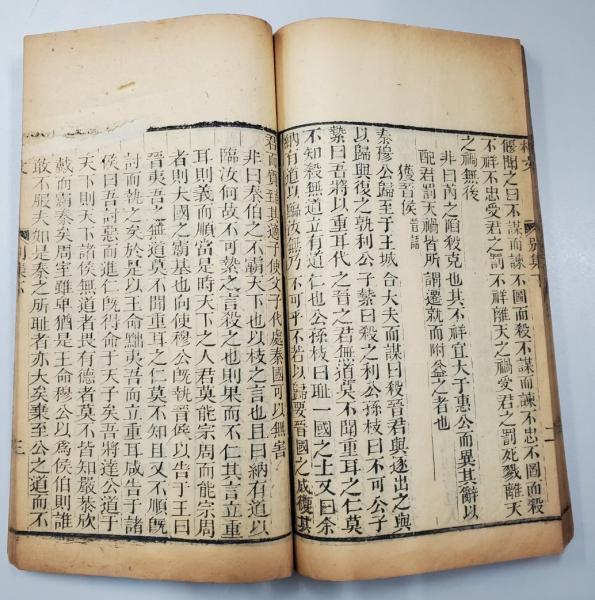 柳文
別集下
二
偃聞之曰不謀而諫不圖而殺不謀而諫不忠不圖而殺
不祥不忠愛君之罰不祥離天之禍愛君之罰死戮離天
之禍無後
非曰芮之陷殺克也其不祥宜大于惠公而異其辭以
配君罰天禍皆所謂遷就而附益之者也
獲晉侯 晉語
秦穆公歸至于王城合大夫而謀曰殺晉君與逐出之與
以歸興復之孰利公子縶曰殺之利公孫枝曰不可公子
縶曰吾將以重耳代之晉之君無道莫不聞重耳之仁莫
不知殺無道立有道仁也公孫枝曰耻一國之士又曰余
納有道以臨汝無乃不可乎不若以歸要晉國之成復其
君而質其適子使父子代處秦國可以無害
非曰秦伯之不霸天下也以枝之言也且曰納有道以
臨汝何故不可縶之言殺之也則果而不仁其言立重
耳則義而順當是時天下之人君莫能宗周而能宗周
者則大國之霸基也向使穆公旣執晉侯以告于王曰
晉夷吾之無道莫不聞重耳之仁莫不知且又不順旣
討而執之矣於是以王命黜夷吾而立重耳咸告于諸
侯曰吾討惡而進仁旣得命于天子矣吾將達公道于
天下則天下諸侯無道者畏有德者莫不皆知嚴秦欣
戴而霸秦矣周室雖卑猶是王命穆公以爲侯伯則誰
敢不服夫如是秦之所耻者亦大矣棄至公之道而不
文
別集下
三